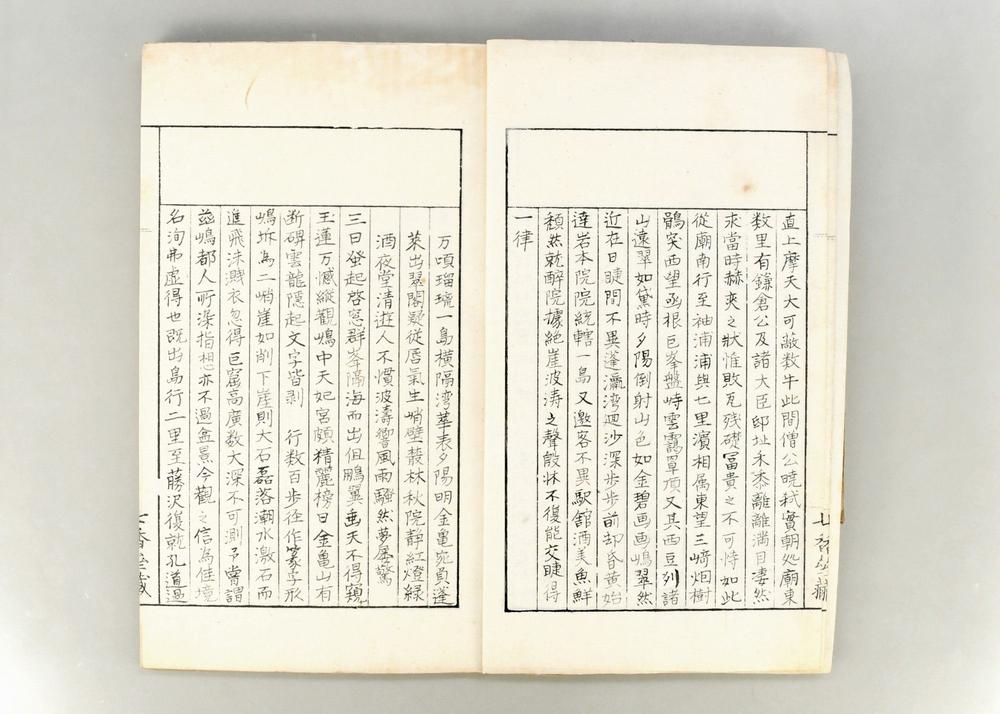 直上摩天大可蔽数牛此間僧公暁弑實朝処廟東
数里有鎌倉公及諸大臣邸址禾黍離離満目凄然
求當時赫爽之状惟敗瓦残礎冨貴之不可恃如此
從廟南行至袖浦浦與七里濱相属東望三﨑烟樹
鶻突西望函根巨峯盤峙雲靄罩頂又其西豆列諸
山遠翠如黛時夕陽倒射山色如金碧画画嶋翠然
近在目睫間不異蓬瀛湾廻沙深歩歩前却昏黄始
達岩本院院統轄一島又邀客不異駅舘酒美魚鮮
頽然就酔院據絶崖波涛之聲殷牀不復能交睫得
一律
万頃瑠璃一島横隔湾華表夕陽明金亀宛負蓬
莱出翠閣疑從唇氣生峭壁叢林秋院静紅燈緑
酒夜堂清遊人不慣波濤響風雨騒然夢屡驚
三日癸起啓窓群峯隔海而出但鵬翼垂天不得窺
玉蓮万憾縦觀嶋中天妃宮頗精麗榜曰金亀山有
断碑雲龍隠起文字皆剥 行数百歩径作篆字形
嶋坼為二峭崖如削下崖則大石磊落潮水激石而
進飛沫濺衣忽得巨窟高廣数丈深不可測予嘗謂
茲嶋都人所澡指想亦不過盆景今觀之信為佳境
名洵弗虚得也既出島行二里至藤沢復就孔道過